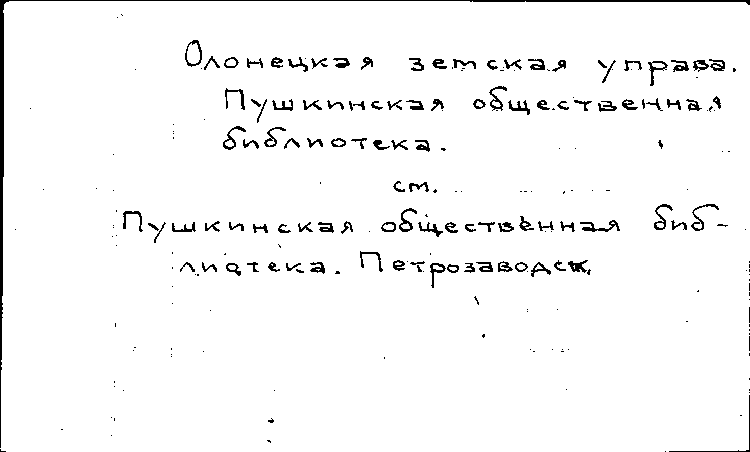 Олонецкая земская управа.
Пушкинская общественная
библиотека.
см.
Пушкинская общественная биб-
лиотека. Петрозаводск.